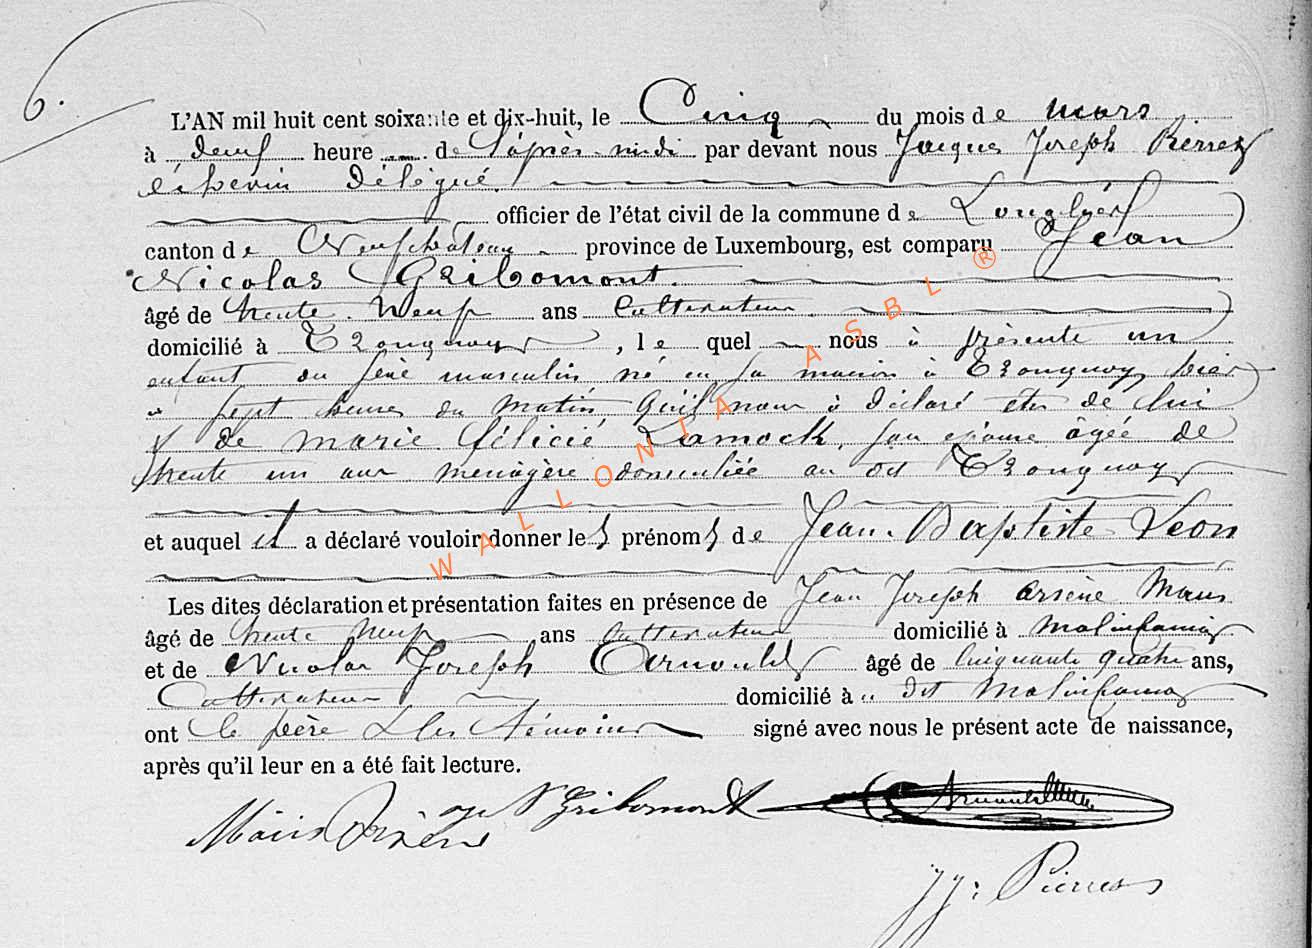 6.
L'AN mil huit cent soixante et dix-huit, le Cinq du mois de mars
à deux heure de l'après-midi par devant nous Jacques Joseph Pierret
échevin délégué.
officier de l'état civil de la commune de Longlier
canton de Neufchateau province de Luxembourg, est comparu Jean
Nicolas Gribomont.
âgé de trente-neuf ans Cultivateur.
domicilié à Tronquoy, le quel nous à présenté un
enfant du sexe masculin, né en sa maison à Tronquoy hier
à sept heures du matin qu'il nous à déclaré être de lui
& de marie félicié Lamock, son épouse âgée de
trente un ans menagère domiciliée au dit Tronquoy
et auquel il a déclaré vouloir donner les prénoms de Jean-Baptiste Léon
Les dites déclaration et présentation faites en présence de Jean Joseph Arsène Maus
âgé de trente neuf ans Cultivateur domicilié à Molinfaing
et de Nicolas Joseph Arnould âgé de Cinquante quatre ans,
Cultivateur domicilié à dit Molinfaing
ont le père & les témoins signé avec nous le présent acte de naissance,
après qu'il leur en a été fait lecture.
Arsène N Gribomont Arnould
JJ: Pierret
WALLONIA ASBL ®